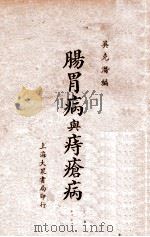 吳克潛編
腸胃病與痔瘡病
上海大衆書局印行